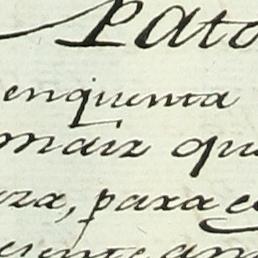 Pato
enquenta
maiz qu
za, para e